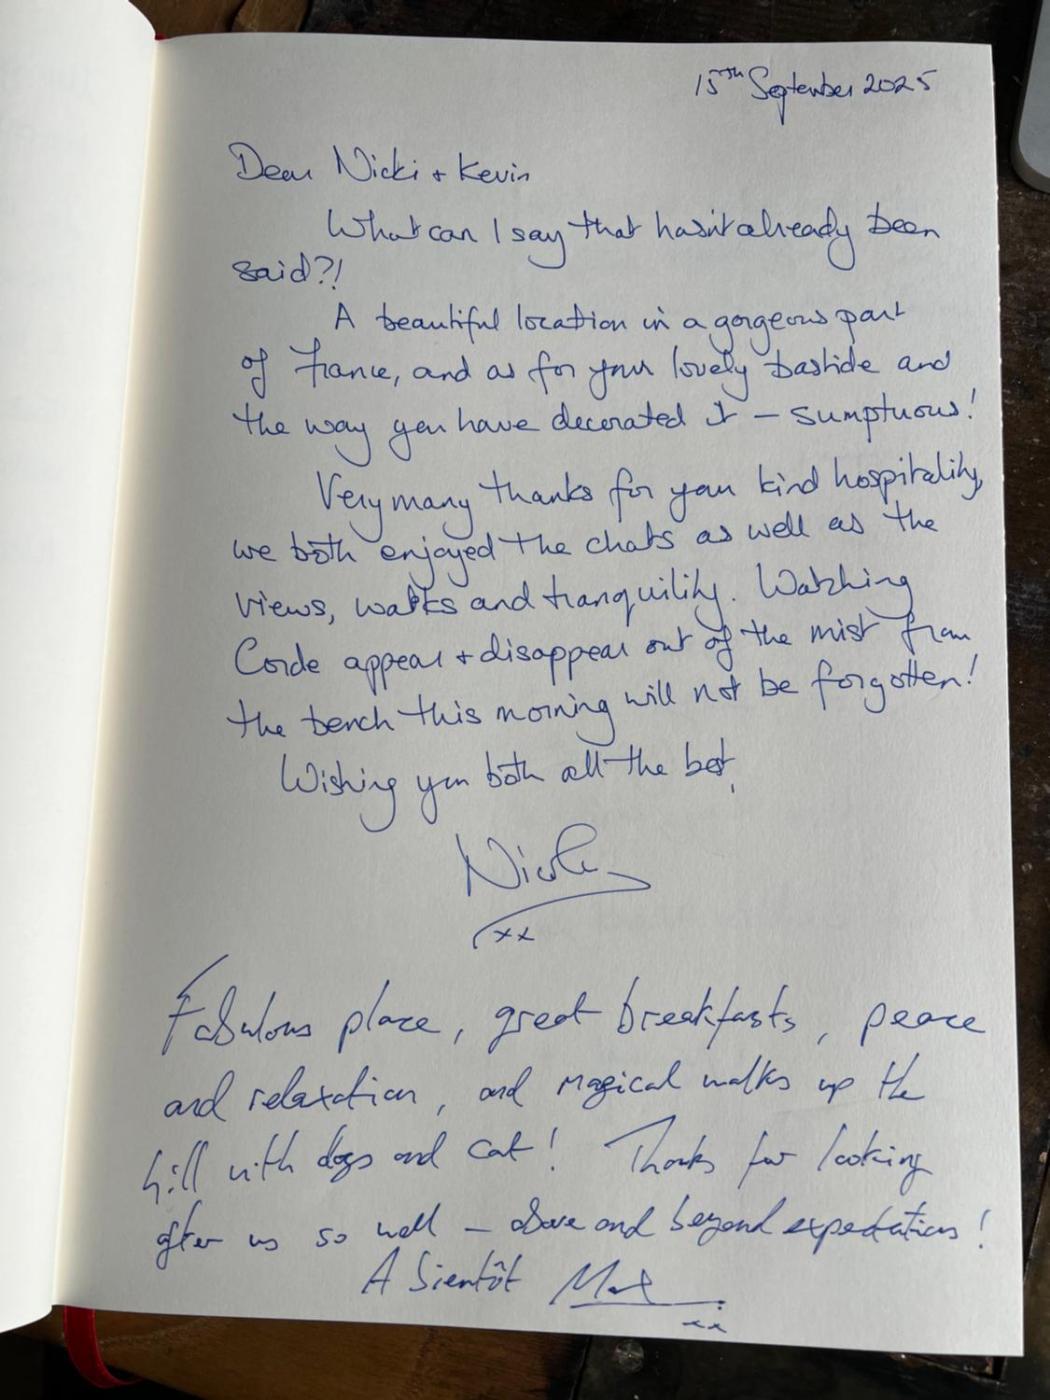 15th September 2025
Dear Nicki + Kevin
What can I say that hasn't already been
said?!
A beautiful location in a gorgeous part
of France, and as for your lovely bastide and
the way you have decorated it – sumptuous!
Very many thanks for your kind hospitality,
we both enjoyed the chats as well as the
views, walks and tranquility. Watching
Corde appear + disappear out of the mist from
the bench this morning will not be forgotten!
Wishing you both all the best,
xx
Fabulous place, great breakfasts, peace
and relaxation, and magical walks up the
hill with dogs and cat! Thanks for looking
after us so well – above and beyond expectations!
A bientôt
xx